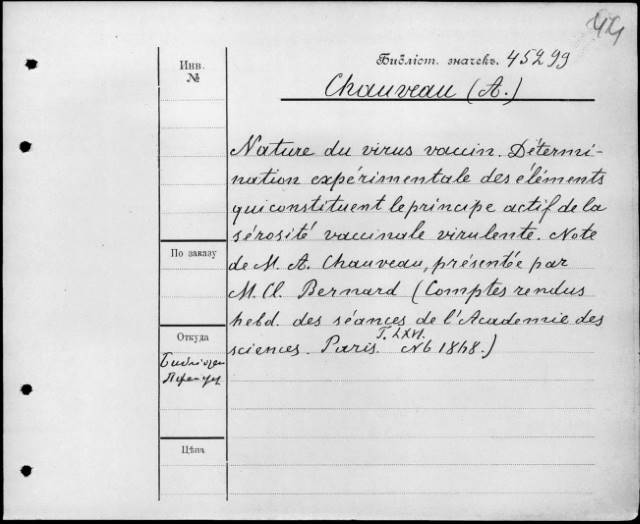 44
Инв.
№
Библіот. значекъ. 45299
Chauveau (A.)
Nature du virus vaccin. Détermi-
nation expérimentale des éléments
qui constituent le principe actif de la
sérosité vaccinale virulente. Note
По заказу
de M. A. Chauveau, présentée par
M. Cl. Bernard (Comptes rendus
hebd. des séances de l'Academie des
Откуда
T. LXVI.
sciences. Paris. №6 1868.)
Цѣна